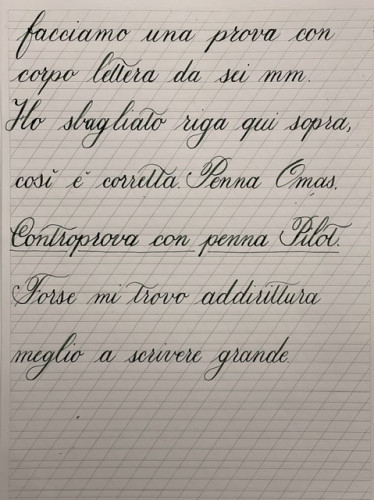 facciamo una prova con
corpo lettera da sei mm.
Ho sbagliato riga qui sopra,
così è corretta. Penna Omas.
Controprova con penna Pilot.
Forse mi trovo addirittura
meglio a scrivere grande.